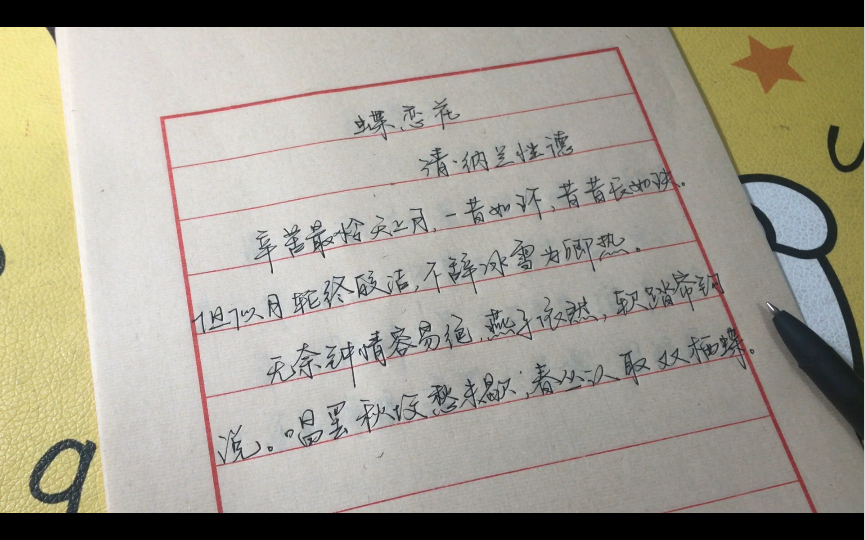 蝶恋花
清·纳兰性德
辛苦最怜天上月,一昔如环,昔昔长如玦。
但似月轮终皎洁,不辞冰雪为卿热。
无奈钟情容易绝,燕子依然,软踏帘钩
说。唱罢秋坟愁未歇,春丛认取双栖蝶。
g